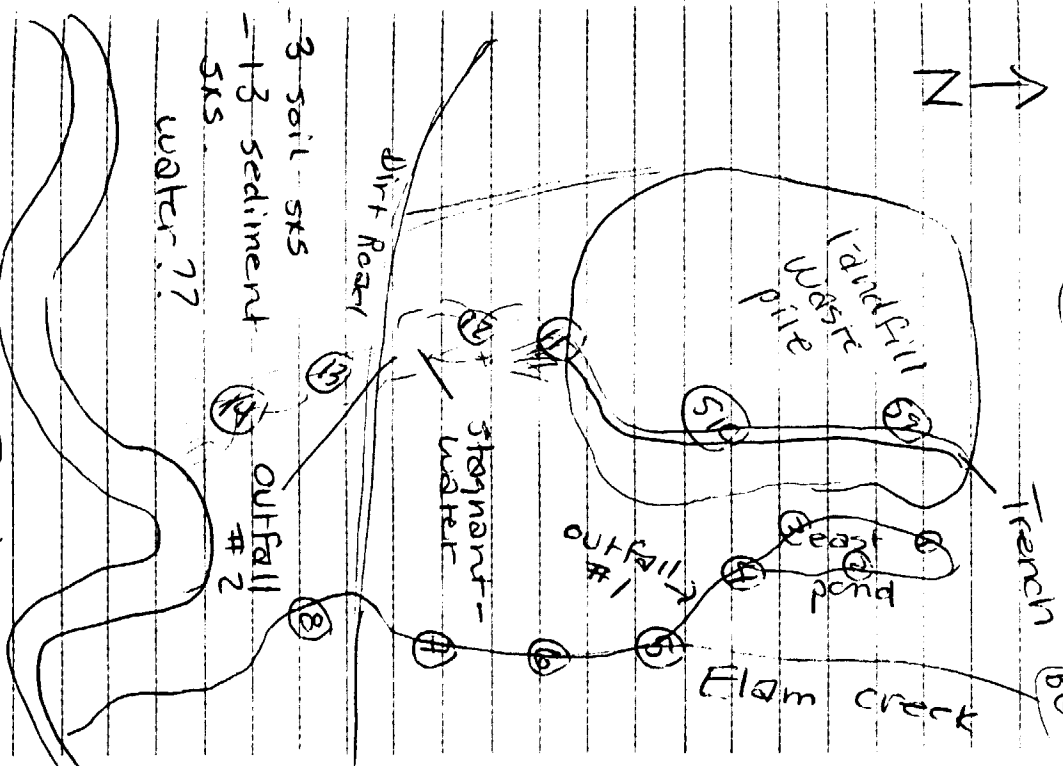 N
Trench
BG
landfill
waste
pile
S9
S10
east
pond
1
2
3
4
outfall
#1
5
Elam creek
6
7
8
11
12
stagnant
water
Dirt Road
outfall
#2
13
14
-3 soil sxs
-13 sediment
sxs.
water ??